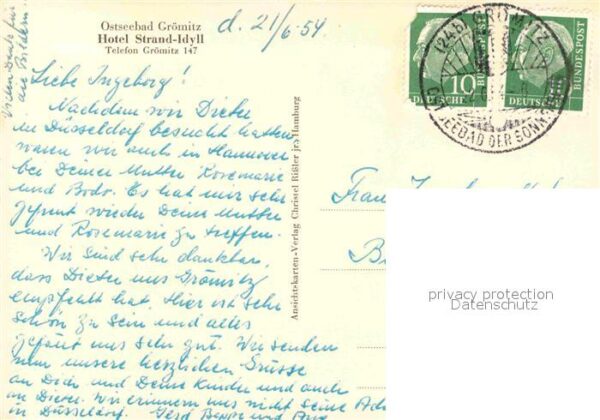 Ostseebad Grömitz
Hotel Strand-Idyll
Telefon Grömitz 147
d. 21/6. 54
Vielen Dank für
die Bilder.
Liebe Ingeborg!
Nachdem wir Dieter
in Düsseldorf besucht hatten
waren wir auch in Hannover
bei Deiner Mutter Rosemarie
und Bodo. Es hat mir sehr
gefreut wieder Deine Mutter
und Rosemarie zu treffen.
Wir sind sehr dankbar,
dass Dieter uns Grömitz
empfehlt hat. Hier ist sehr
schön zu sein und alles
gefällt uns sehr gut. Wir senden
nun unsere herzlichen Grüsse
an Dich und Deine Kinder und auch
an Dieter. Wir erinnern uns nicht seine Adr
in Düsseldorf. Gerd
Ansichtskarten-Verlag Christel Rißler jr., Hamburg
10
DEUTSCHE BUNDESPOST
DEUTSCHE BUNDESPOST
(24b) GRÖMITZ
OSTSEEBAD DER SONN
Frau
privacy protection
Datenschutz